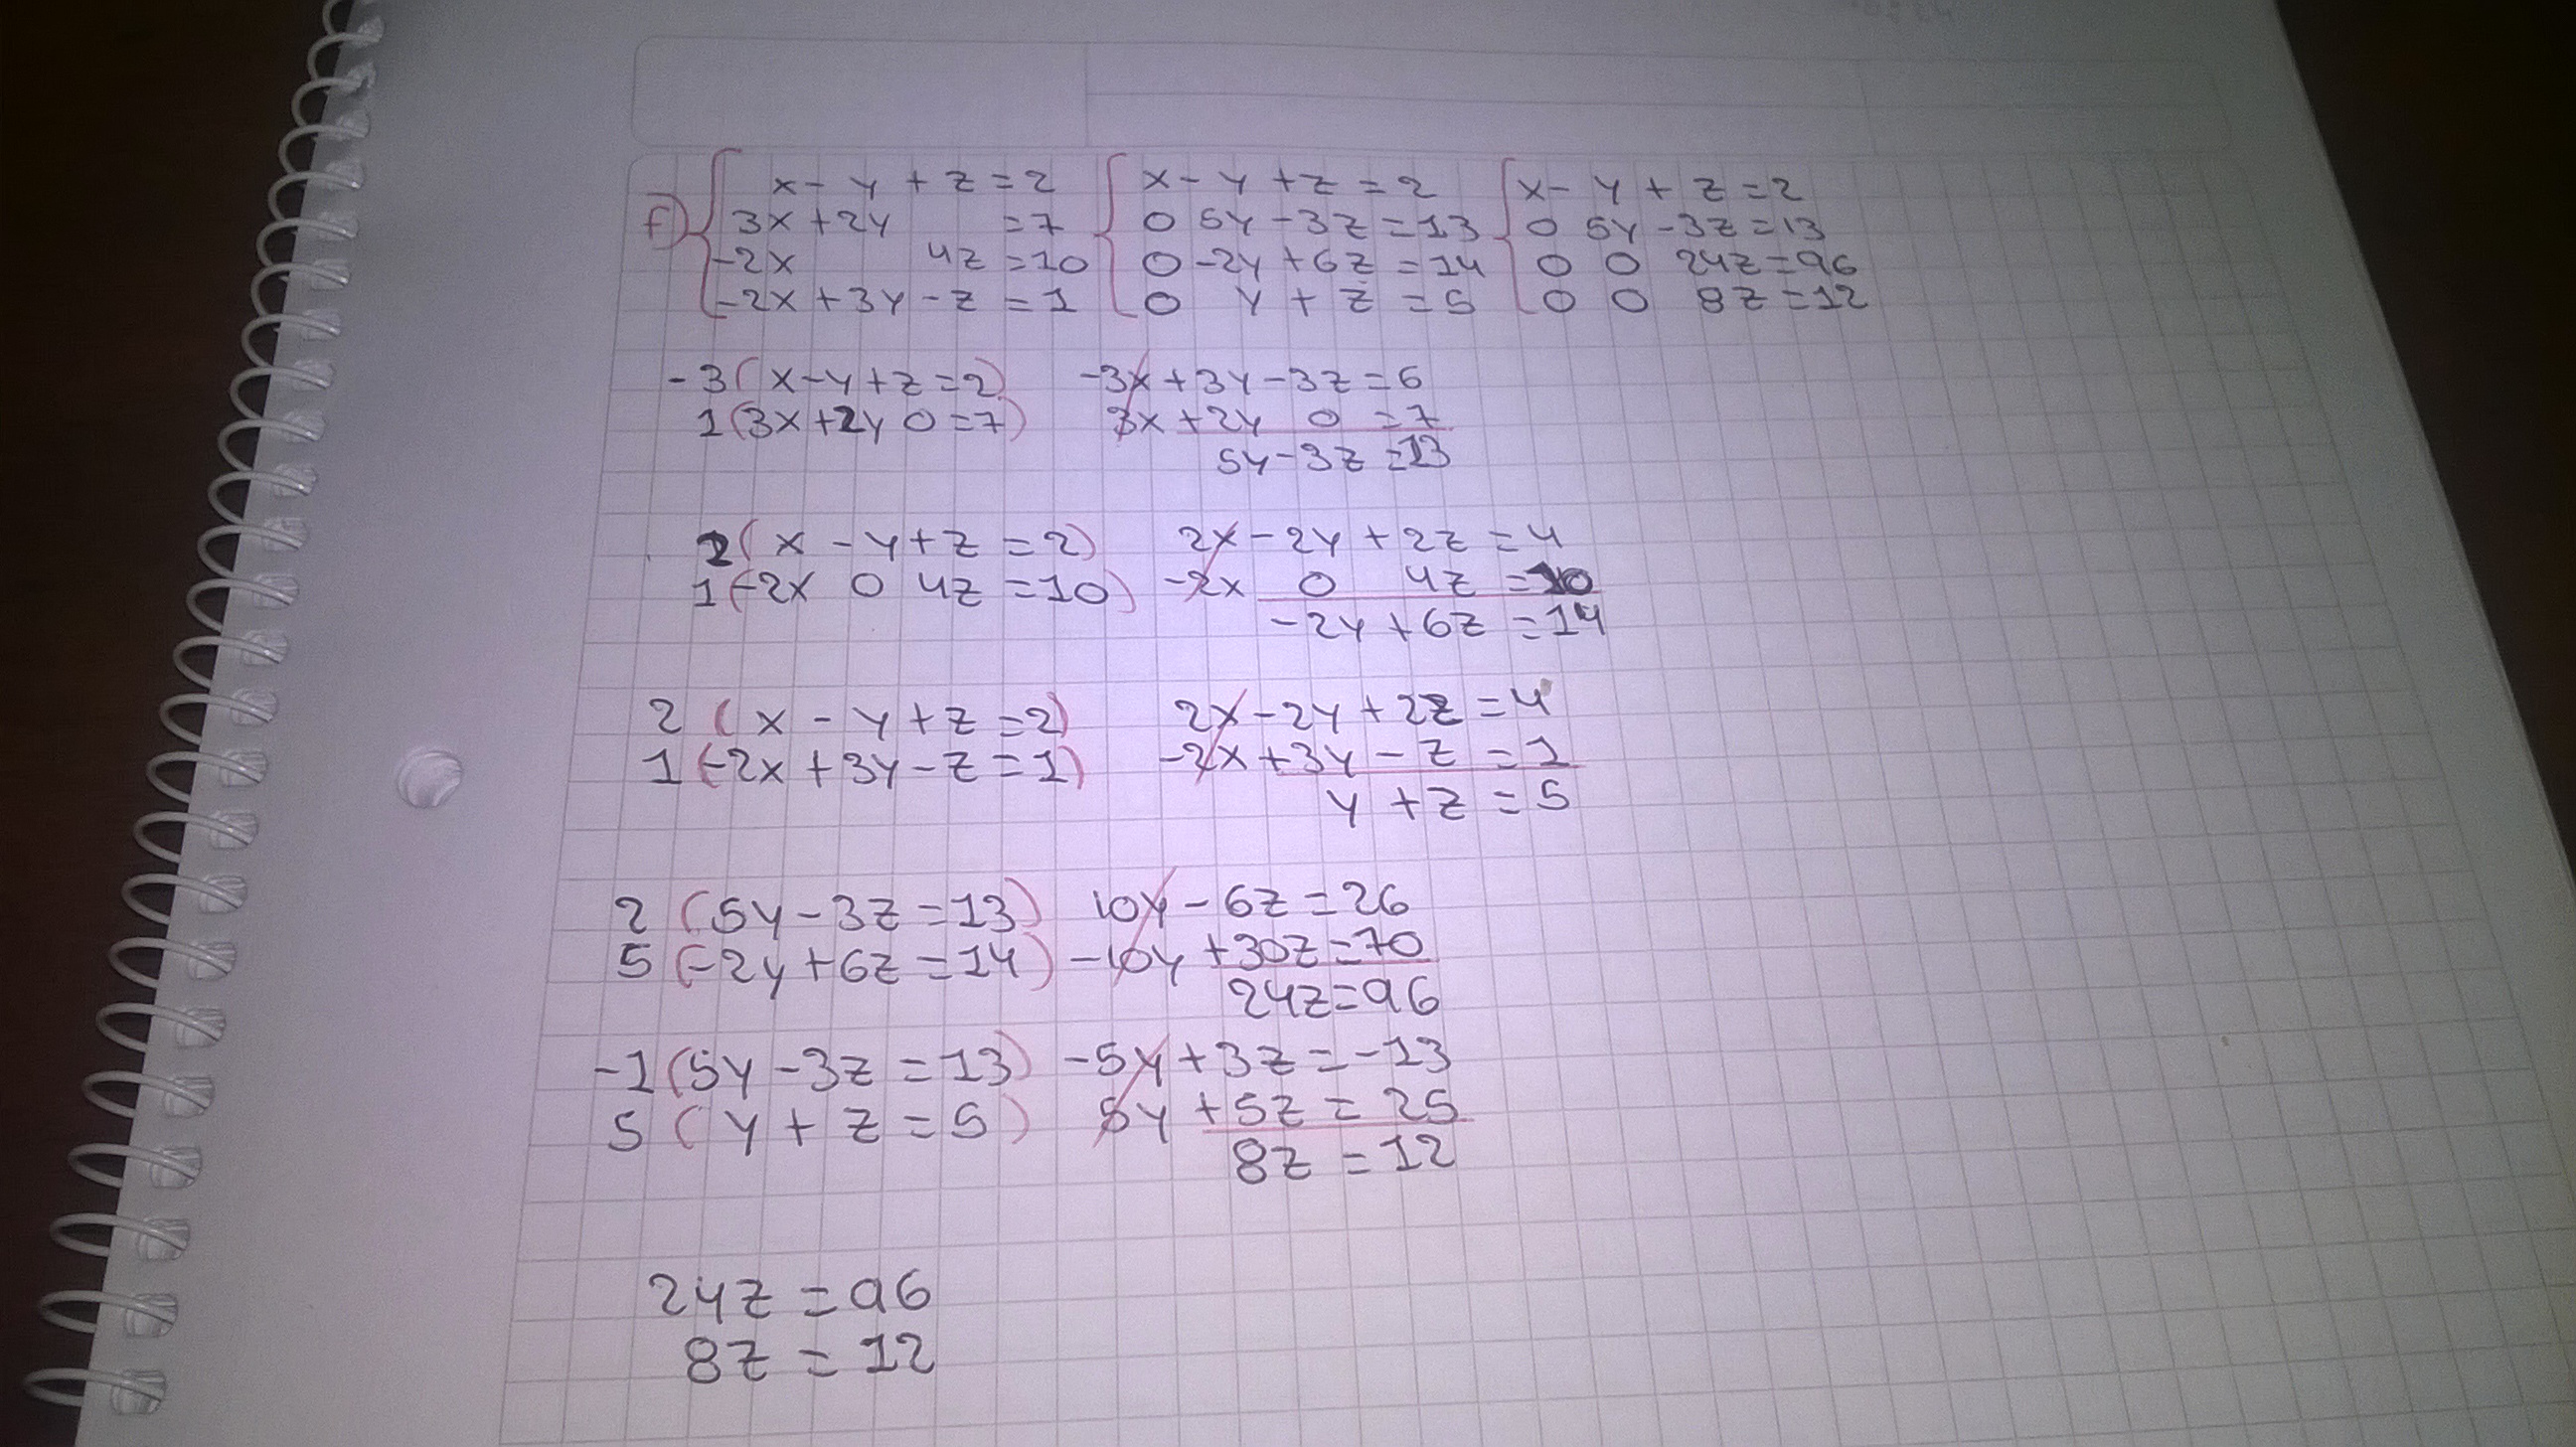 f) { x - y + z = 2 { x - y + z = 2 { x - y + z = 2
3x + 2y = 7 0 5y - 3z = 13 0 5y - 3z = 13
-2x 4z = 10 0 -2y + 6z = 14 0 0 24z = 96
-2x + 3y - z = 1 0 y + z = 5 0 0 8z = 12
-3 (x - y + z = 2) -3x + 3y - 3z = 6
1 (3x + 2y 0 = 7) 3x + 2y 0 = 7
5y - 3z = 13
2 (x - y + z = 2) 2x - 2y + 2z = 4
1 (-2x 0 4z = 10) -2x 0 4z = 10
-2y + 6z = 14
2 (x - y + z = 2) 2x - 2y + 2z = 4
1 (-2x + 3y - z = 1) -2x + 3y - z = 1
y + z = 5
2 (5y - 3z = 13) 10y - 6z = 26
5 (-2y + 6z = 14) -10y + 30z = 70
24z = 96
-1 (5y - 3z = 13) -5y + 3z = -13
5 (y + z = 5) 5y + 5z = 25
8z = 12
24z = 96
8z = 12